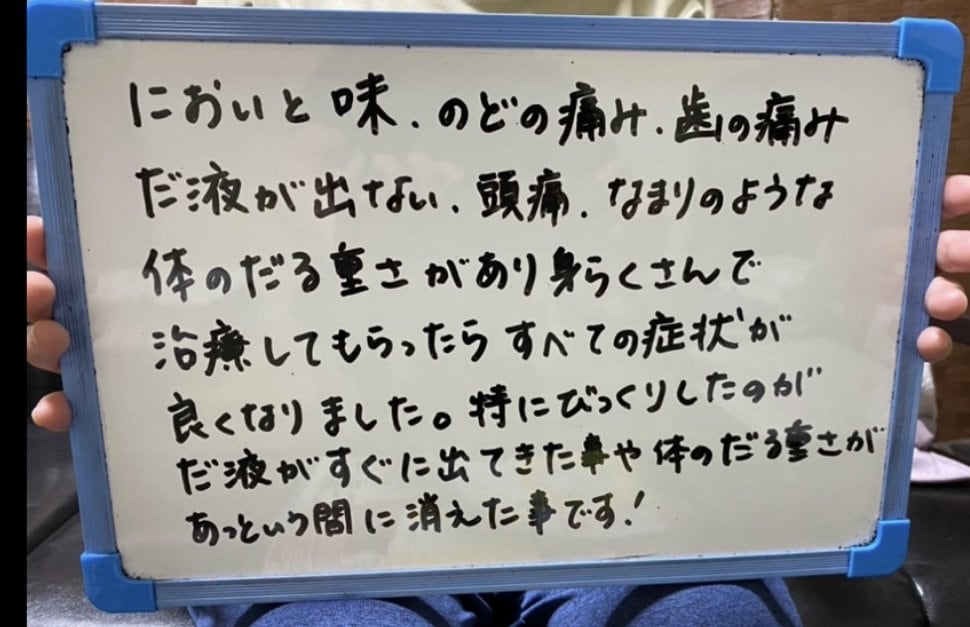 においと味、のどの痛み、歯の痛み
だ液が出ない、頭痛、なまりのような
体のだる重さがあり身らくさんで
治療してもらったらすべての症状が
良くなりました。特にびっくりしたのが
だ液がすぐに出てきた事や体のだる重さが
あっという間に消えた事です!